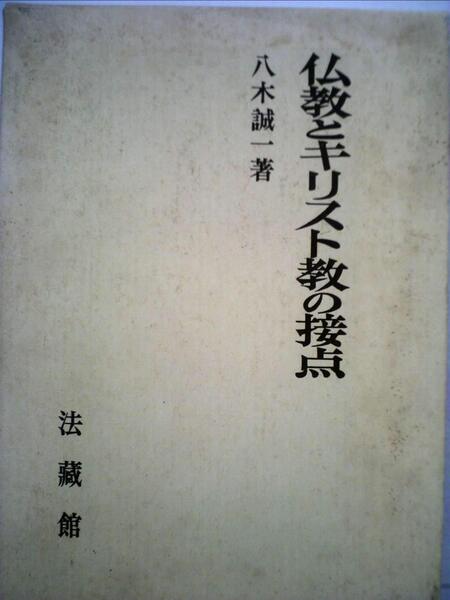 仏教とキリスト教の接点
八木誠一著
法藏館